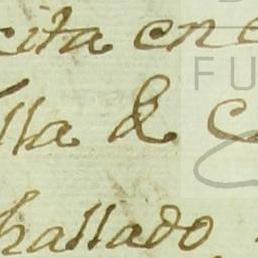 cita en e
lla de C
hallado